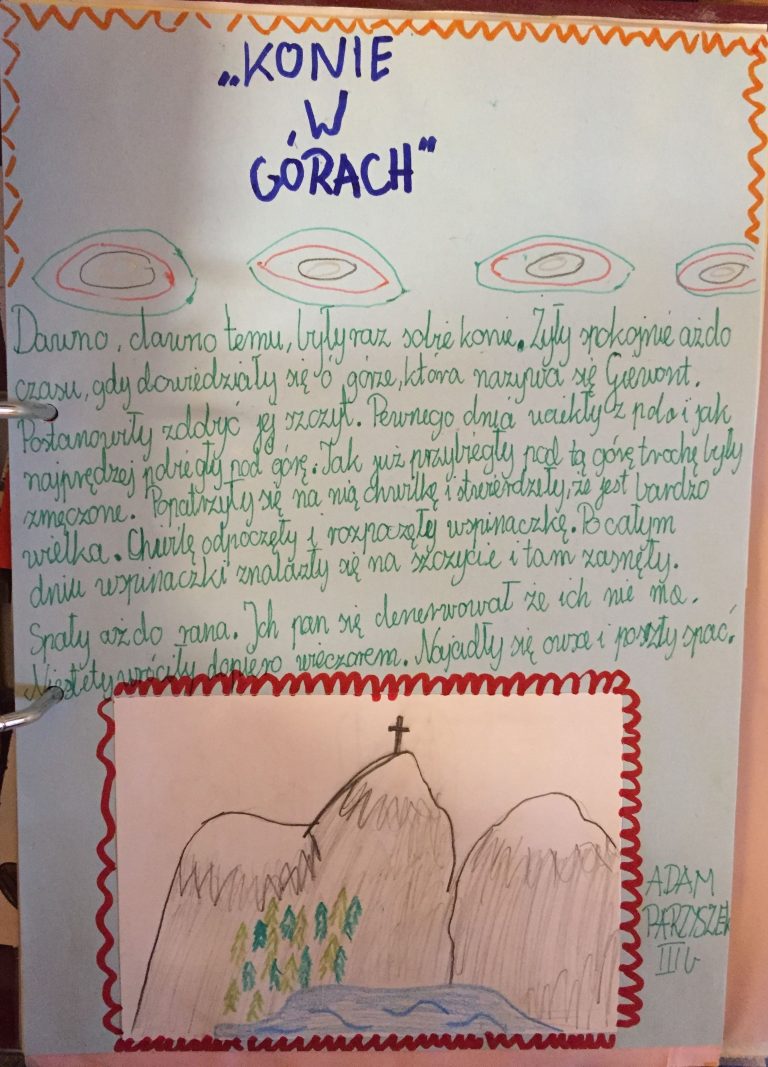 „KONIE
W
GÓRACH"
Dawno, dawno temu, były raz sobie konie. Żyły spokojnie aż do
czasu, gdy dowiedziały się o górze, która nazywa się Giewont.
Postanowiły zdobyć jej szczyt. Pewnego dnia uciekły z pola i jak
najprędzej pobiegły pod górę. Jak już przybiegły pod tą górę trochę były
zmęczone. Popatrzyły się na nią chwilkę i stwierdziły, że jest bardzo
wielka. Chwilę odpoczęły i rozpoczęły wspinaczkę. Po całym
dniu wspinaczki znalazły się na szczycie i tam zasnęły.
Spały aż do rana. Ich pan się denerwował że ich nie ma.
Niestety wróciły dopiero wieczorem. Najadły się owsa i poszły spać.
ADAM
PARZYSZEK
III b